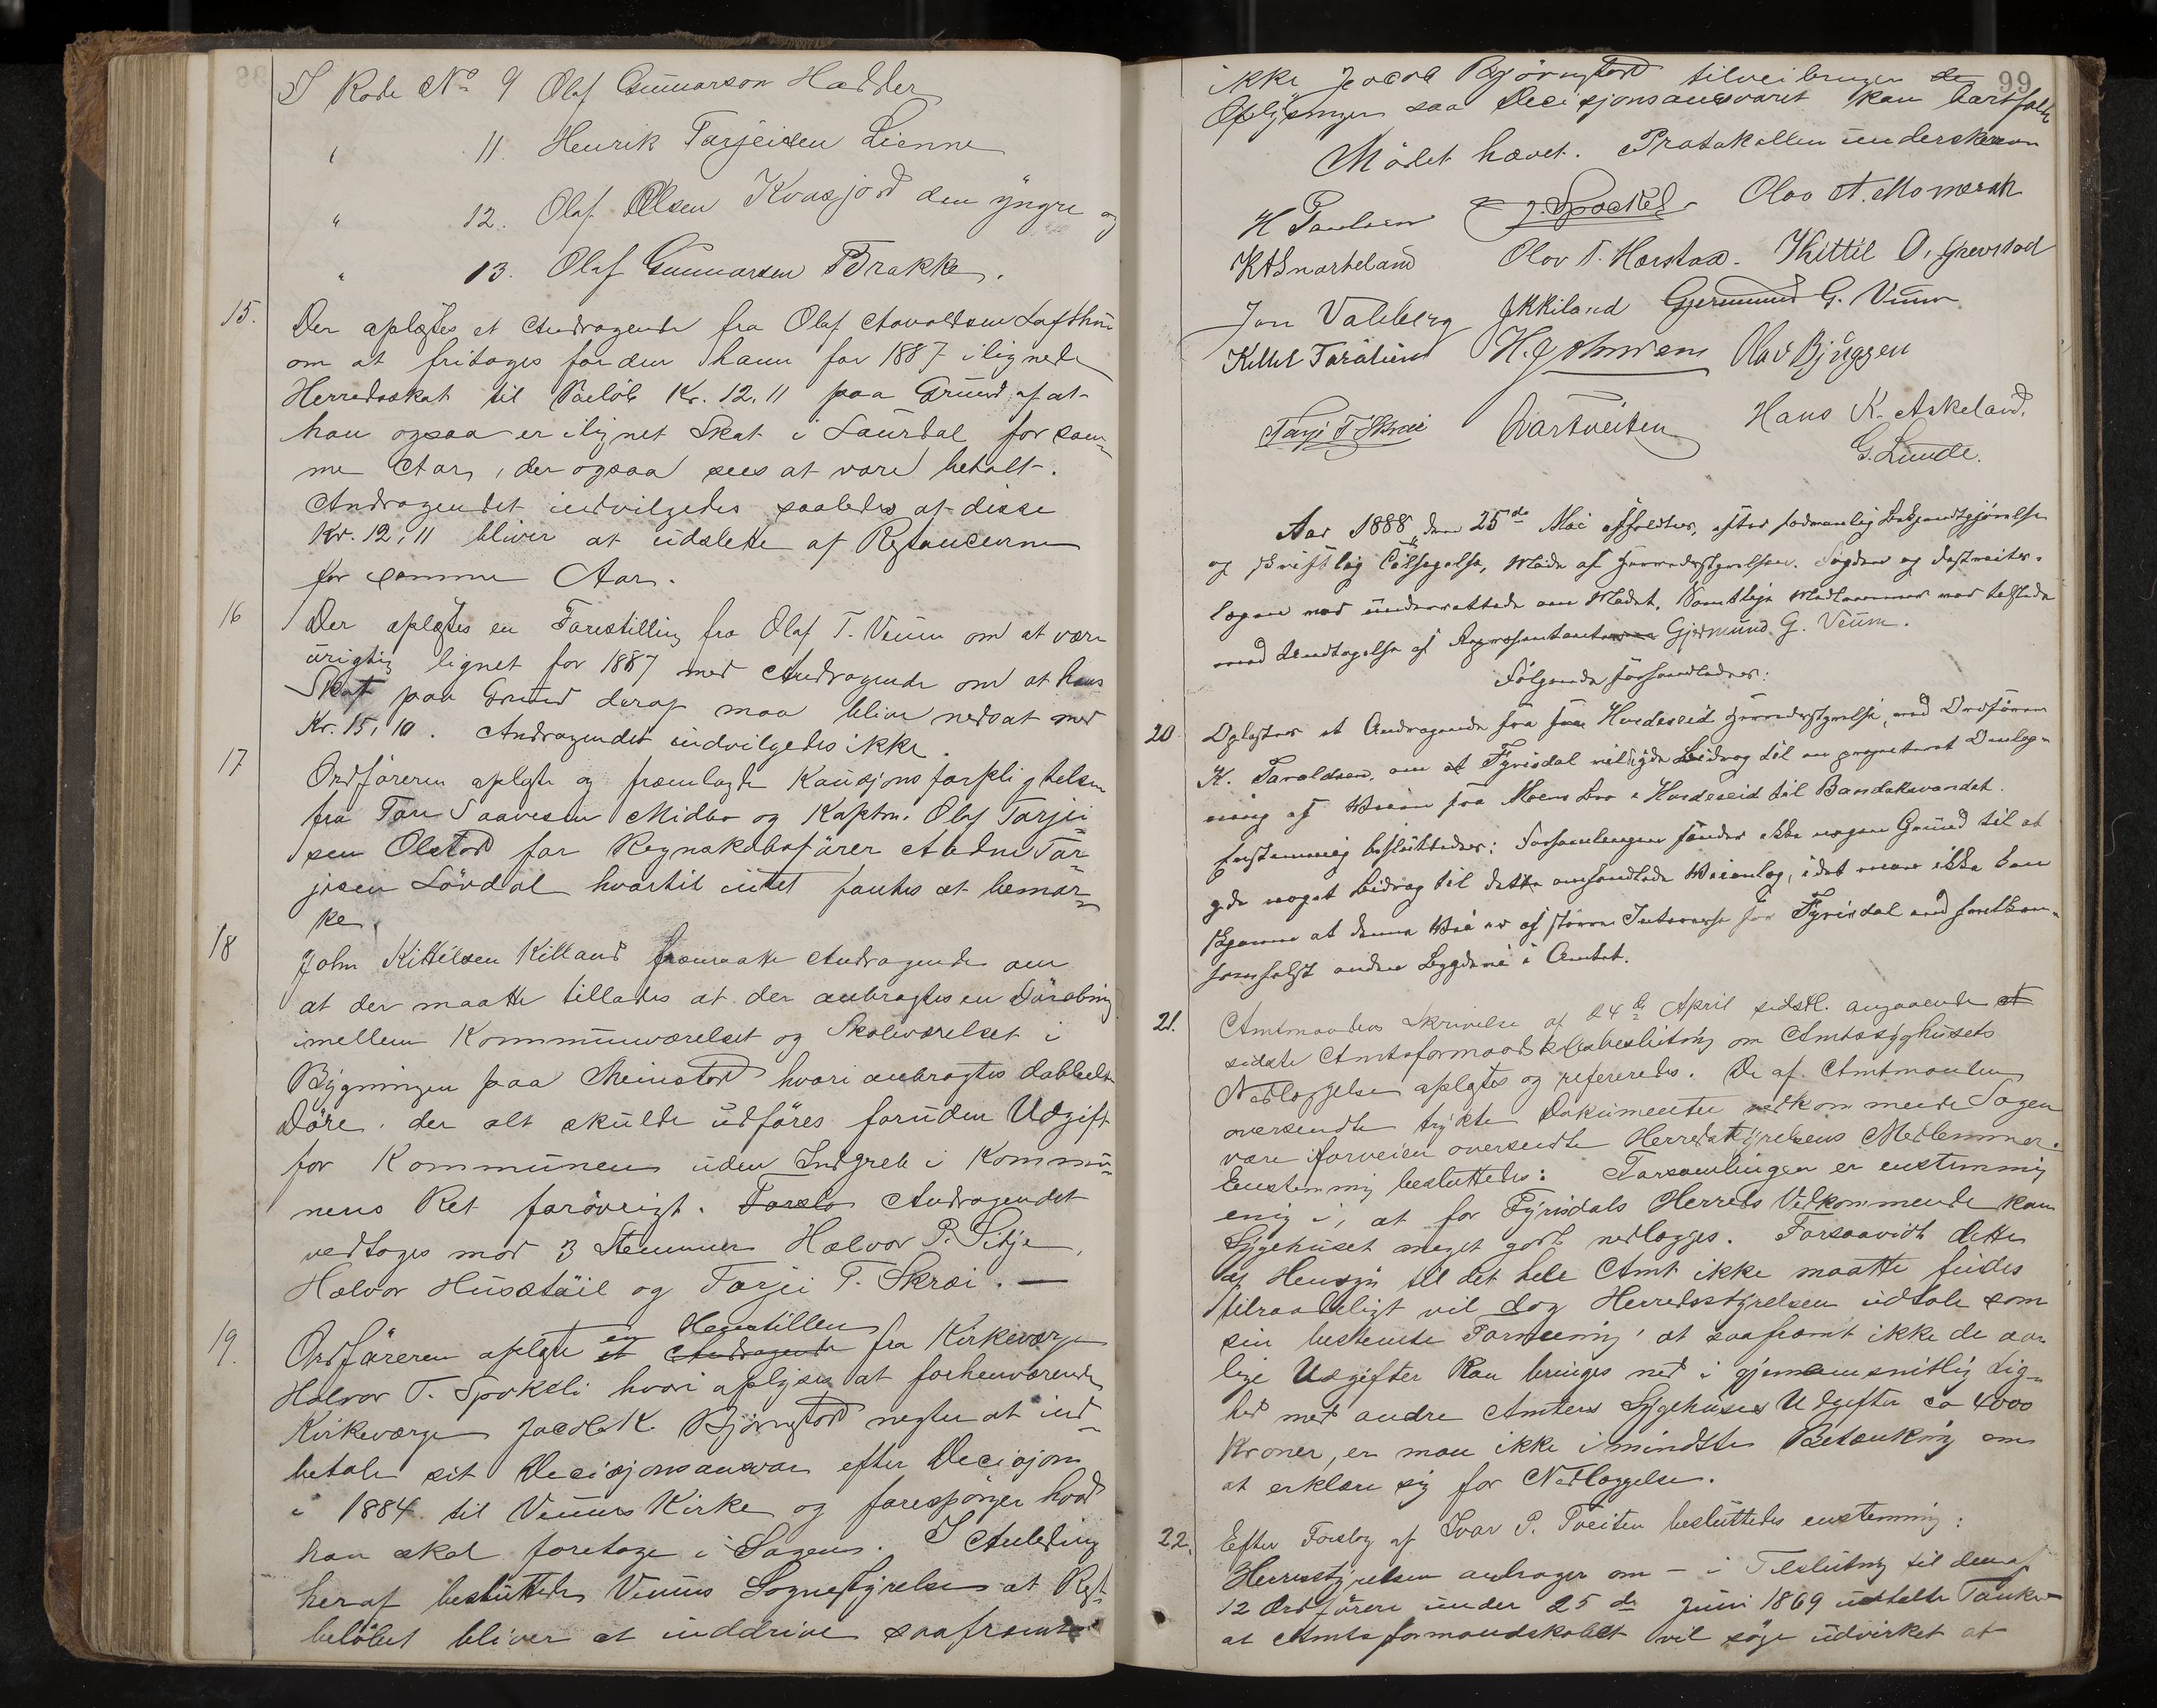 I Rode No 9 Olaf Gunnarson Hadder
" 11. Henrik Tarjeisen Lienne
" 12. Olaf Olsen Kvasjord den yngre og
" 13. Olaf Gunnarsen Brakke.
15. Der oplæstes et Andragende fra Olaf Aavoldsen Lofthuus
om at fritages for den ham for 1887 ilignede
Herredsskat til Beløb Kr. 12,11 paa Grund af at
han ogsaa er ilignet Skat i Laurdal for sam-
me Aar, der ogsaa sees at være betalt.
Andragendet indvilgedes saaledes at disse
Kr. 12,11 bliver at udslette af Restancerne
for samme Aar.
16 Der oplæstes en Forestilling fra Olaf T. Veum om at være
urigtig lignet for 1887 med Andragende om at hans
Skat paa Grund deraf maa blive nedsat med
Kr. 15,10. Andragendet indvilgedes ikke.
17 Ordføreren oplæste og fremlagde Kausjonsforpligtelsen
fra Tarje Saavesen Midbø og Kaptn. Olaf Tarjei-
sen Olstad for Regnskabsfører Aadne Tar-
jesen Løvdal hvortil intet fantes at bemær-
ke.
18 John Kittilsen Killand fremsatte Andragende om
at der maatte tillades at der anbragtes en Døråbning
imellem Kommuneværelset og Skoleværelset i
Bygningen paa Meinstad hvori anbragtes dobbelte
Døre, der alt skulde udføres foruden Udgift
for Kommunen uden Indgreb i Kommu-
nens Ret forøvrigt. Forslo Andragendet
vedtoges mod 3 Stemmer Halvor P. Lilje,
Halvor Husstøil og Tarjei T. Skræi. —
19. Ordføreren oplæste et Andragende en Henstillen fra Kirkeværge
Halvor T. Spokkeli hvori oplyses at forhenværende
Kirkeværge Jacob K. Bjørnstad negter at ind-
betale sit Decisjonsansvar efter Decisjon
i 1884 til Veums Kirke og forespørger hvad
han skal foretage i Sagen. I Anledning
heraf besluttede Veums Sognestyrelse at Rest-
beløbet bliver at inddrive saafremt
99
ikke Jacob Bjørnstad tilveibringer de
Oplysninger saa Decisjonsansvaret kan bortfalde
Mødet hævet. Protokollen underskreven
H Paulsen J. Spockeli Olav A. Momrak
K A Snarteland Olav T. Harstad. Kittil O. Grevstad
Jon Valeberg J K Kiland Gjermund G. Veum
Kittil Taraldlien H. Johnsen Olav Bjuggen
Tarje T Skræi Ivartveiten Hans K. Askeland.
G. Lunde.
Aar 1888 den 25de Mai afholdtes, efter sedvanlig Bekjendtgjørelse
og skriftlig Tilsigelse, Møde af Herredsstyrelsen. Fogden og Distrikts-
lægen var underrettede om Mødet. Samtlige Medlemmer var tilstede
med Undtagelse af Repræsentanterne Gjermund G. Veum.
Følgende forhandledes:
20 Oplæstes et Andragende fra fra Hvideseid Herredsstyrelse, ved Ordfører
K. Taraldsen, om at Fyrisdal vil yde Bidrag til en projecteret Omlæg-
ning af Veien fra Moens Bro i Hvideseid til Bandaksvandet.
Enstemmig besluttedes: Forsamlingen finder ikke nogen Grund til at
yde noget Bidrag til dette omhandlede Veianlæg, idet man ikke kan
skjønne at denne Vei er af større Interesse for Fyrisdal end forethvor-
somhelst anden Bygdevei i Amtet.
21. Amtmandens Skrivelse af 24de April sidstl. angaaende et
sidste Amtsformandskabsbeslutning om Amtssyghusets
Nedlæggelse oplæstes og refereredes. De af Amtmanden
oversendte trykte Dokumenter vedkommende Sagen
vare iforveien oversendte Herredsstyrelsens Medlemmer.
Enstemmig besluttedes: Forsamlingen er enstemmig
enig i, at for Fyrisdals Herreds Vedkommende kan
Sygehuset meget godt nedlægges. Forsaavidt dette
af Hensyn til det hele Amt ikke maatte findes
tilraadeligt vil dog Herredsstyrelsen udtale som
sin bestemte Formening, at saafremt ikke de aar-
lige Udgifter kan bringes ned i gjennemsnitlig Lig-
hed med andre Amters Sygehuses Udgifter ca 4000
Kroner, er man ikke i mindste Betænkning om
at erklære sig for Nedlæggelse.
22. Efter Forslag af Ivar P. Tveiten besluttedes enstemmig:
Herredsstyrelsen andrager om - i Tilslutning til den af
12 Ordførere under 25de Juni 1869 udtalte Tanke -
at Amtsformandskabet vil søge udvirket at